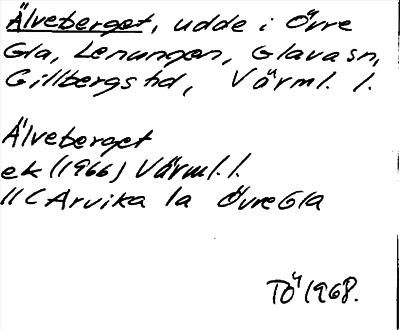 Älveberget, udde i Övre
Gla, Lenungen, Glava sn,
Gillbergs hd, Värml. l.
Älveberget
ek (1966) Värml. l.
11C Arvika 1a Övre Gla
TÖ 1968.